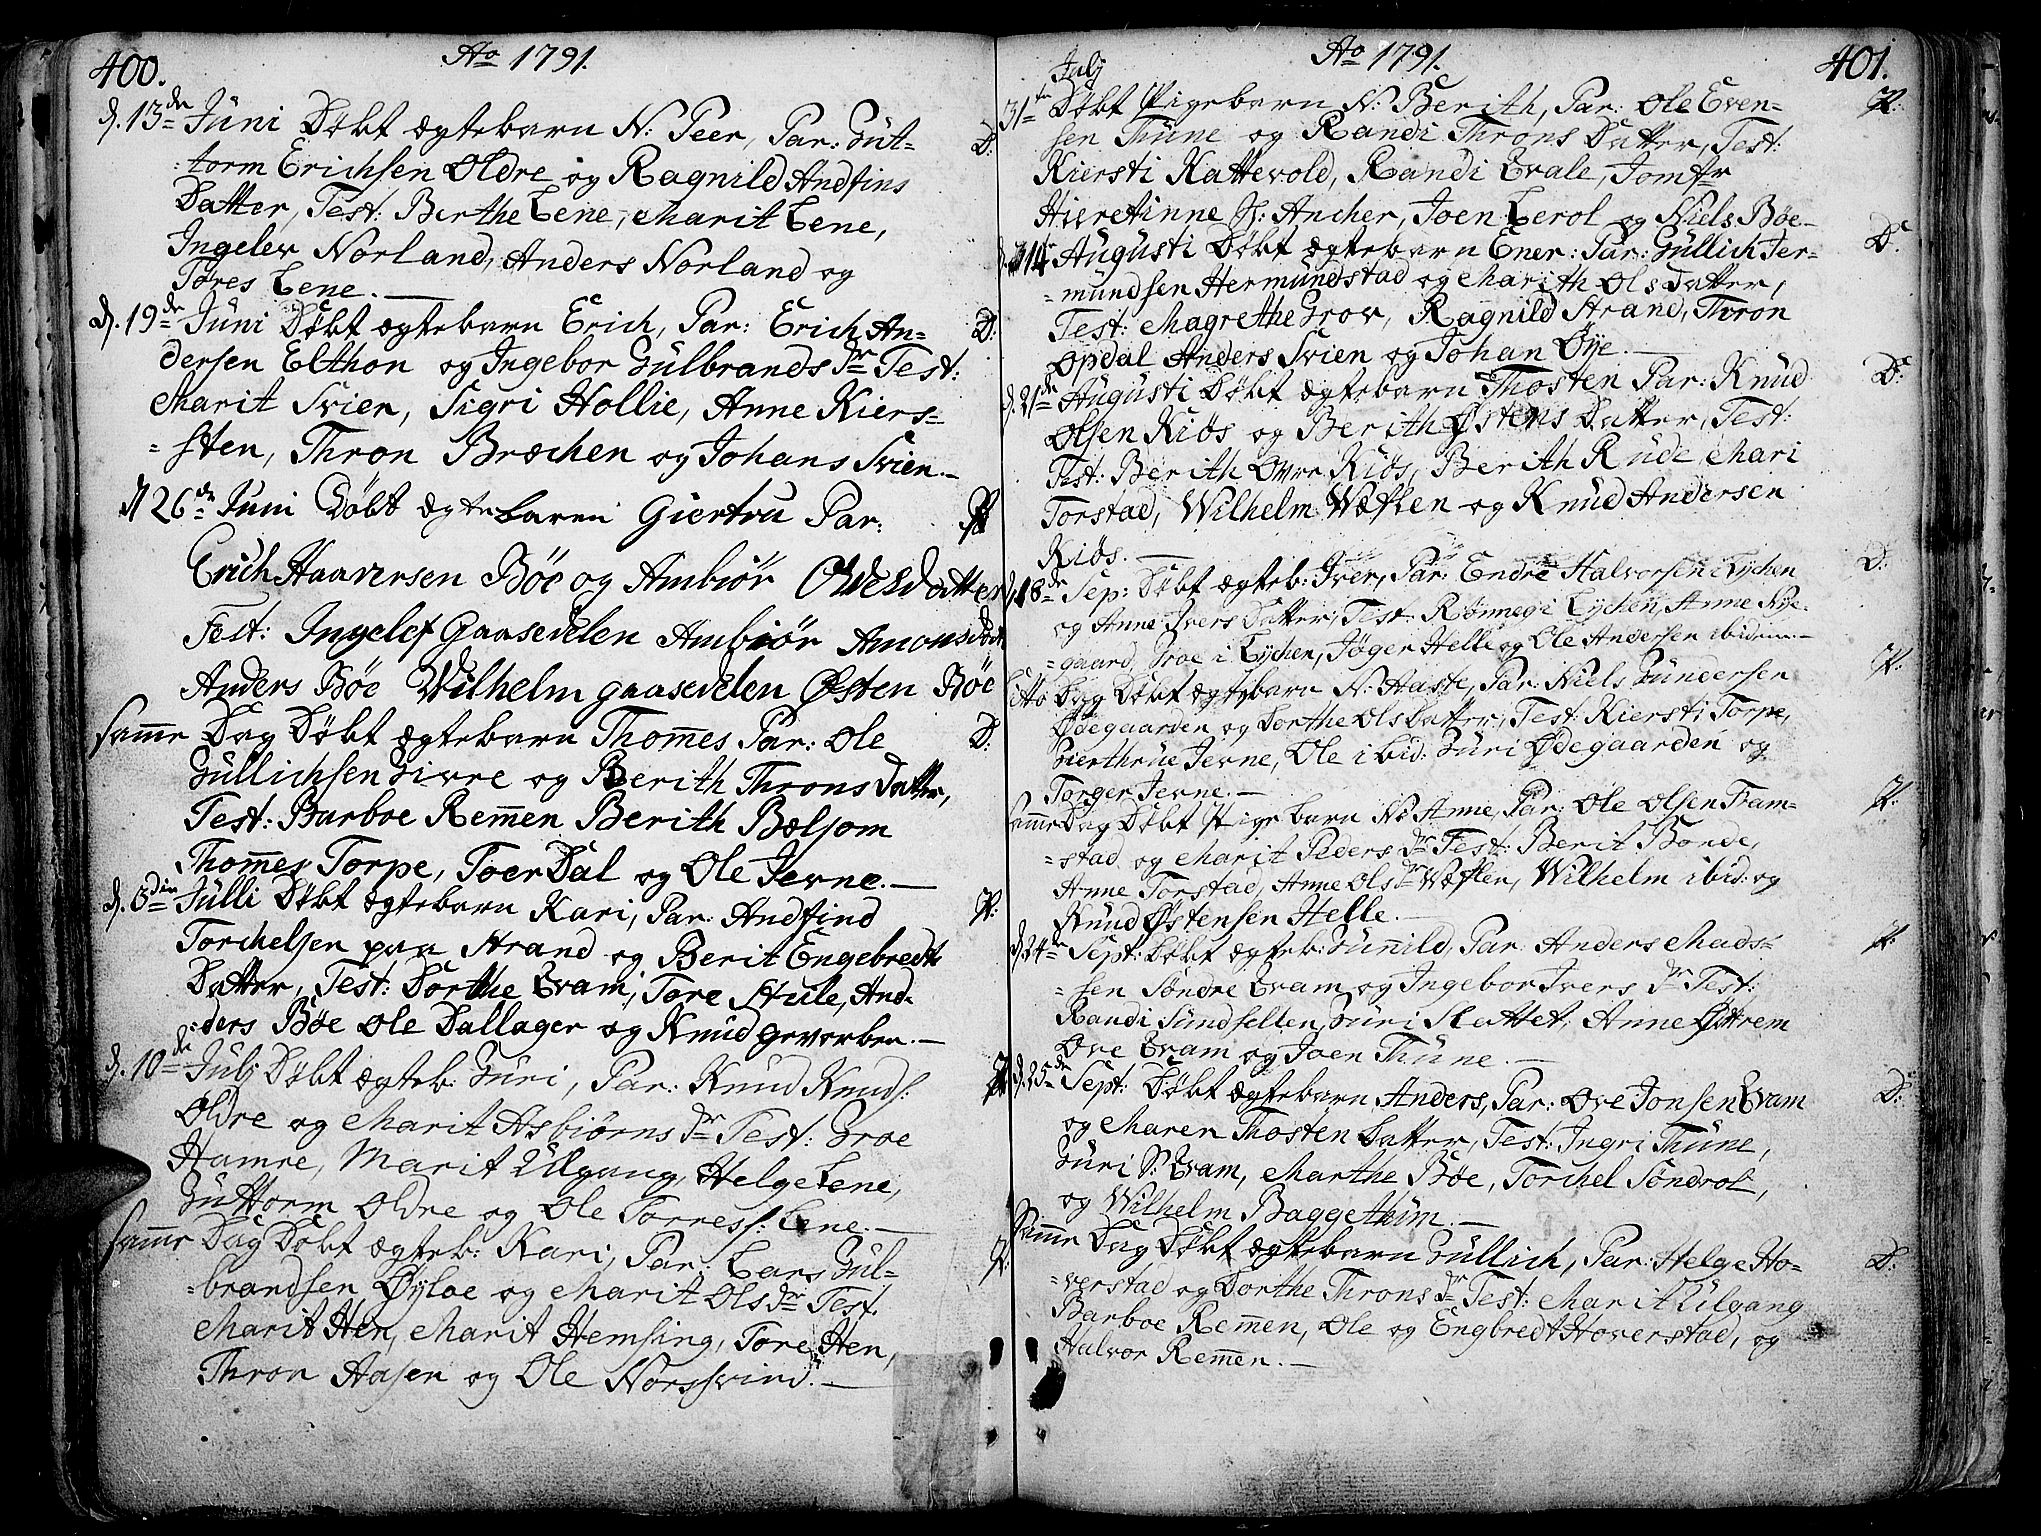 400. Ao 1791.
d. 13de Juni Døbt ægtebarn N: Peer, Par: Gut- D:
-torm Erichsen Oldre og Ragnild Andfins
Datter, Test: Berthe Lene, Marit Lene,
Ingelev Norland, Anders Norland og
Tores Lene. —
d. 19de Juni Døbt ægtebarn Erich, Par: Erich An- D:
dersen Elthon og Ingebor Gulbrands Dr Test:
Marit Svien, Sigri Hollie, Anne Kiers-
-sten, Thron Bræchen og Johans Svien. —
d 26de Juni Døbt ægtebarn Giertru Par: P
Erich Haaversen Bøe og Ambiør Olvesdatter
Test: Ingelef Gaasedelen Ambiør Amonsdat
Anders Bøe Wilhelm gaasedelen Østen Bøe
samme Dag Døbt ægtebarn Thom̄es Par: Ole D:
Gullichsen Givre og Berith Throns Datter,
Test: Barboe Rem̄en Berith Bælsom
Thom̄es Torpe, Toer Dal og Ole Jevne. —
d. 3die Julli Døbt ægtebarn Kari, Par: Andfind P:
Torchelsen paa Strand og Berit Engebredts
Datter, Test: Dorthe Qvam, Tore Stule, And-
-ders Bøe Ole Dallager og Knud gevorben. —
d. 10de Julj Døbt ægteb: Guri, Par: Knud Knuds: P
Oldre og Marit Asbiørns Dr Test: Groe
Hamre, Marit Ulgang, Helge Lene,
Guttorm Oldre og Ole Torress: Lene. —
samme Dag Døbt ægteb: Kari, Par: Lars Gul- P:
-brandsen Øyloe og Marit Ols Dr Test.
Marit Hen, Marit Hemsing, Tore Hen,
Thron Aasen og Ole Norssvind. —
Ao 1791. 401.
Julj
31te Døbt Pigebarn N: Berith, Par: Ole Even- P:
sen Thune og Randi Throns Datter, Test:
Kiersti Kattevold, Randi Qvale, Jomfr
Hieretinne H: Ancher, Joen Lerol og Niels Bøe —
d. 14 Augusti Døbt ægtebarn Ener: Par: Gullich Jer- D:
-mundsen Hermundstad og Marith Ols Datter,
Test: Magrethe Grov, Ragnild Strand, Thron
Opdal Anders Svien og Johan Øye. —
d. 21de Augusti Døbt ægtebarn Thosten Par: Knud D:
Olsen Kiøs og Berith Østens Datter, Test:
Test: Berith Ovre Kiøs, Berith Rude Mari
Torstad, Wilhelm Wæflen og Knud Andersen
Kiøs. —
d. 18de Sep: Døbt ægteb: Iver, Par: Endre Halvorsen Lychen D:
og Anne Ivers Datter, Test: Rønneg i Lychen, Anne Nye-
-gaard, Groe i Lychen, Jøger Helle og Ole Andersen ibidem —
Ditto Dag Døbt ægtebarn N: Haste, Par: Niels Gundersen P:
Ødegaarden og Dorthe Ols Datter, Test: Kiersti Torpe,
Gierthrue Jevne, Ole ibid: Guri Ødegaarden og
Torger Jevne. —
samme Dag Døbt Pigebarn N: Anne, Par: Ole Olsen Fram- P:
-stad og Marit Peders Dr Test: Berit Bonde,
Anne Torstad, Anne Ols Dr Wæflen, Wilhelm ibid: og
Knud Østensen Helle. —
d. 24de Sept: Døbt ægteb: Gunild, Par: Anders Mads- P:
-sen Søndre Qvam og Ingebor Ivers Dr Test:
Randi Sundhellen, Guri Slættet, Anne Østrem
Ove Qvam og Joen Thune. —
d. 25de Sept: Døbt ægtebarn Anders, Par: Ove Jonsen Qvam D:
og Maren Thosten Datter, Test: Ingri Thune,
Guri S: Qvam, Marthe Bøe, Torchel Søndrol,
og Wilhelm Baggethun. —
Samme Dag Døbt ægtebarn Gullich, Par: Helge Ho- D:
-verstad og Dorthe Throns Dr Test: Marit Ulgang
Barboe Rem̄en, Ole og Engbredt Hoverstad, og
Halvor Rem̄en. —